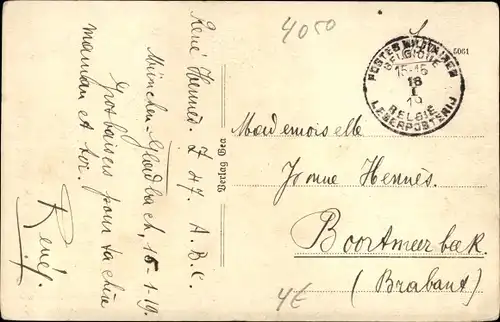 René Hennes. Z 47. A.B.C.
München-Gladbach, 16-1-19.
Gros baisers pour ta chère
maman et toi.
René
4050
5061
POSTES MILITAIRES
BELGIQUE
15-16
18
I
19
BELGIE
LEGERPOSTERIJ
Mademoiselle
Hennes.
Boortmeerbeek
(Brabant)
4€
Verlag